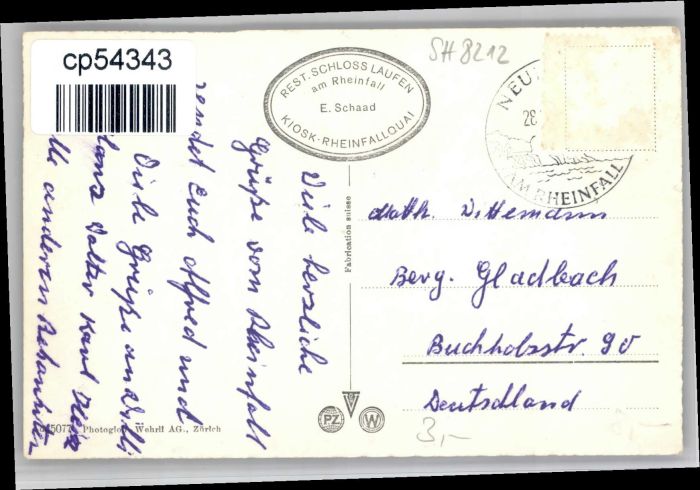 cp54343
SH 8212
REST. SCHLOSS LAUFEN
am Rheinfall
E. Schaad
KIOSK-RHEINFALLQUAI
NEU
28.
AM RHEINFALL
Viele herzliche
Grüße vom Rheinfall
sendet Euch Alfred und
Viele Grüße an Willi
Hans Walter Karl Heinz
alle anderen Bekannten
Fabrication suisse
Math. Dittemann
Berg. Gladbach
Buchholzstr. 90
Deutschland
3,-
PZ W
5077 Photoglob-Wehrli AG., Zürich